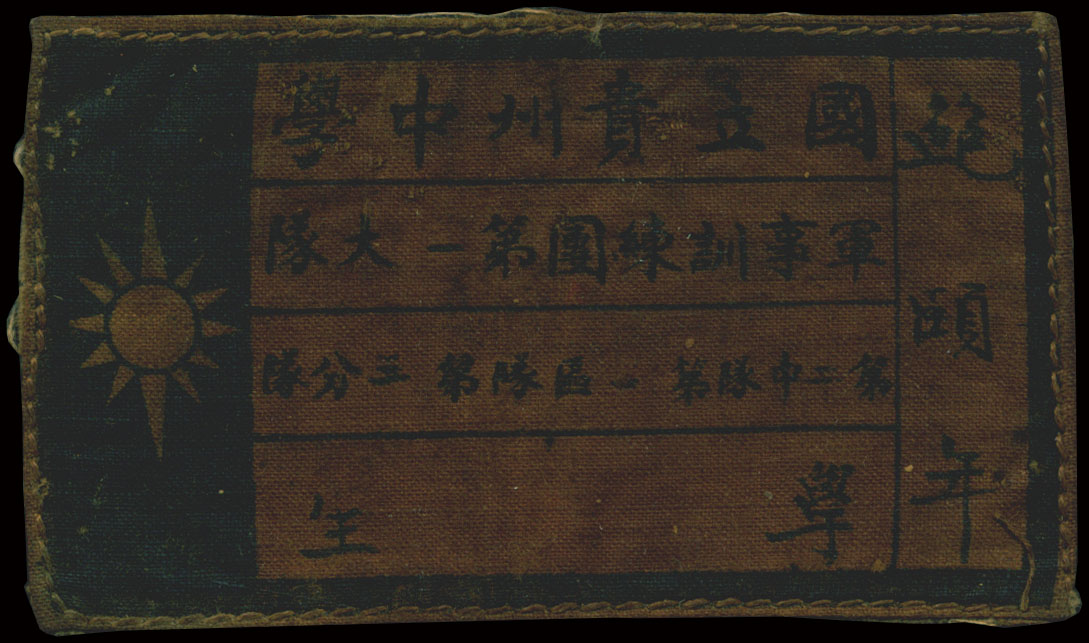 頤年
國立貴州中學
軍事訓練團第一大隊
第二中隊第一區隊第三分隊
學生